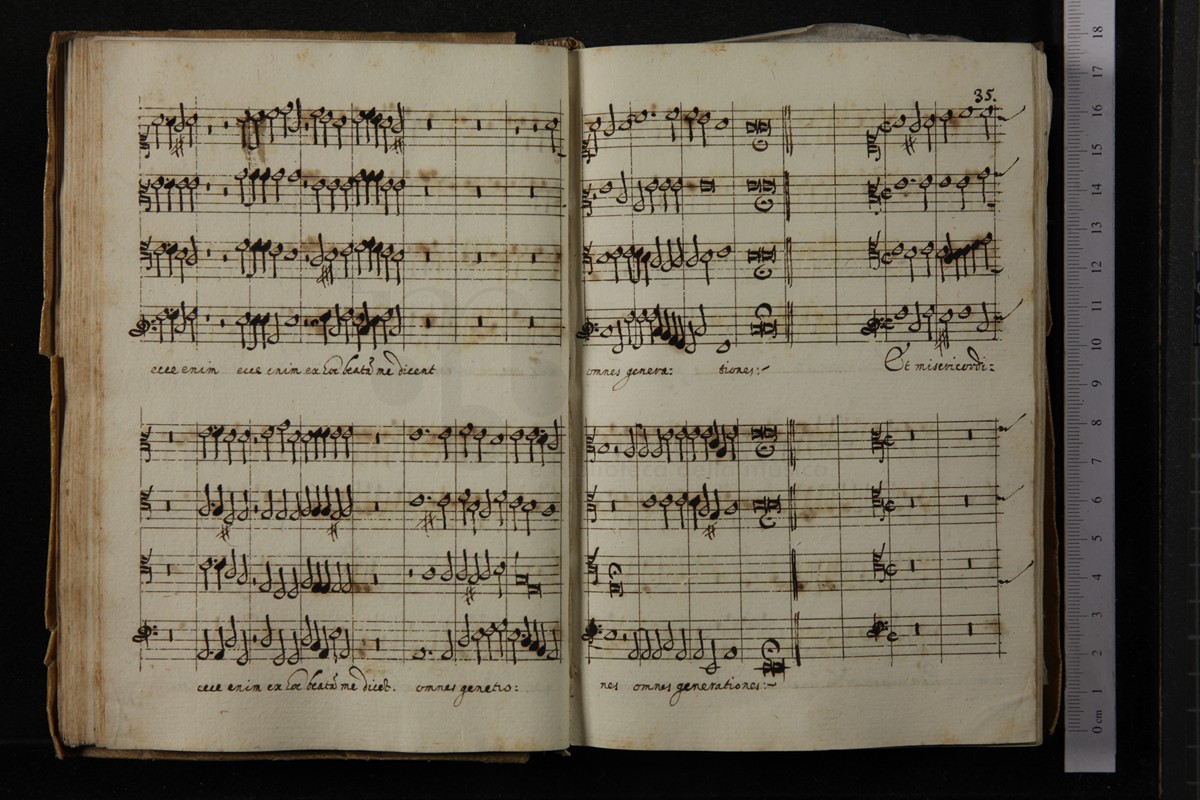 35.
ecce enim ecce enim ex hoc beatā me dicent
omnes genera: tiones:~
Et misericordi:
ecce enim ex hoc beatā me dicēt. omnes genetio:
nes omnes generationes:~
0 cm 1 2 3 4 5 6 7 8 9 10 11 12 13 14 15 16 17 18